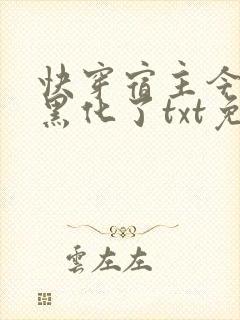 快穿宿主今
黑化了txt免
雲左左